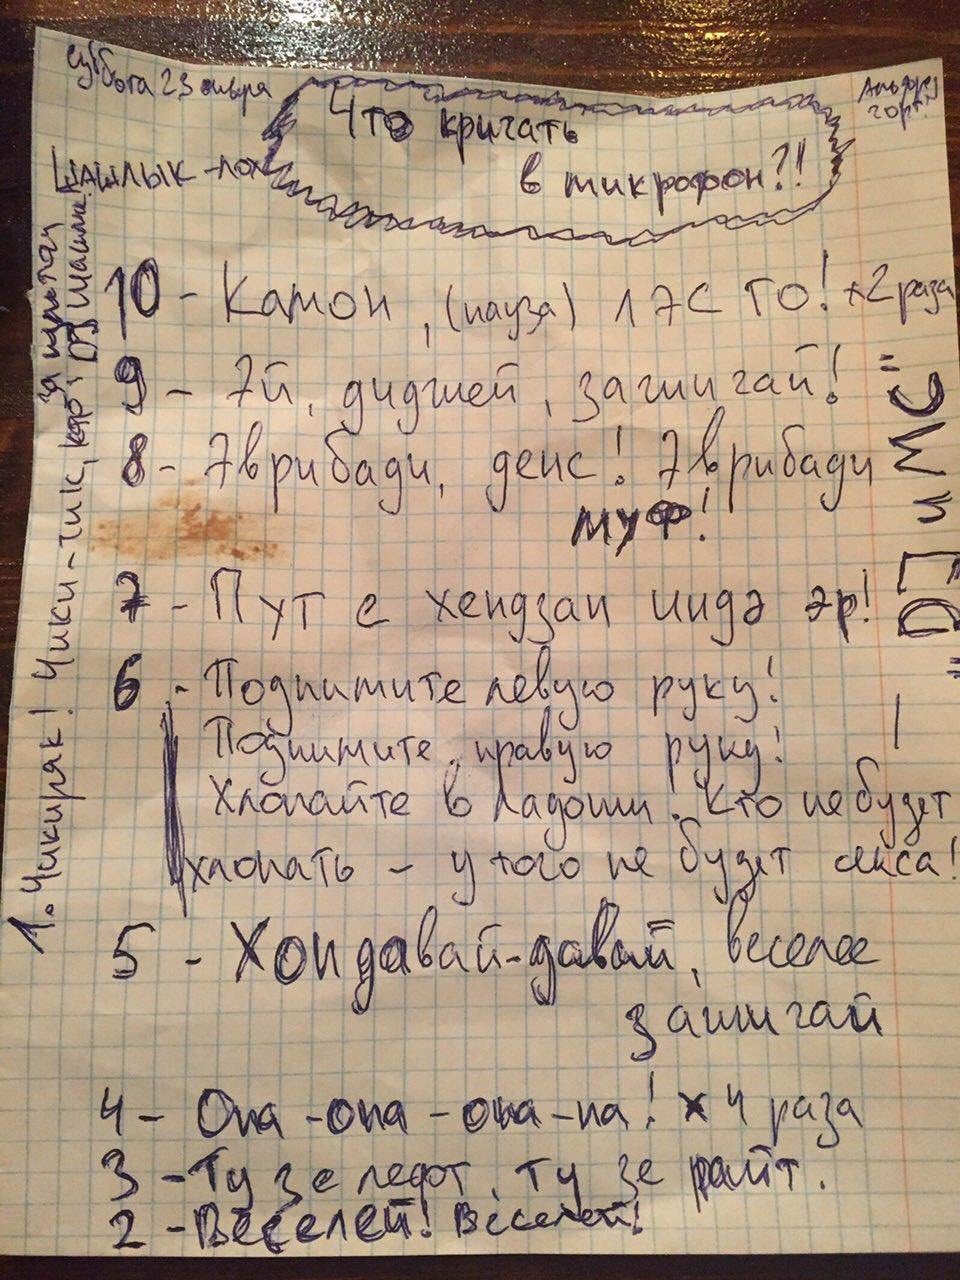 суббота 23 января
Что кричать
в микрофон?!!
Шашлык-поп
10 - Камон, (пауза) 1 7С ТО! *2 раза
9 - 7й, диджей, зажигай!
8 - 7врибади, денс! 7врибади
муф!
7 - Пут е хендзап индэ эр!
6 - Поднимите левую руку!
Поднимите правую руку!
Хлопайте в ладоши! Кто не будет
хлопать - у того не будет секса!
5 - Хоп давай-давай, веселее
зажигай
4 - Опа-опа-опа-па! х 4 раза
3 - Ту зе лефт, ту зе райт.
2 - Веселей! Веселей!
1. Чикиряк! Чики-чик,
за
DJ
— "DJ и МС"